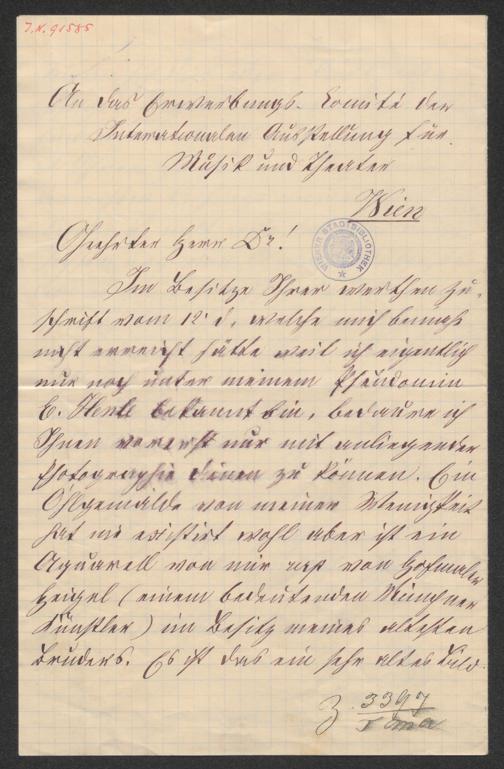 J.N. 91585
An das Erwerbungs-Comité der
Internationalen Ausstellung für
Musik und Theater
Wien
WIENER STADTBIBLIOTHEK
Geehrter Herr Dr!
Im Besitze Ihrer werthen Zu-
schrift vom 12 d, welche mich beinahe
nicht erreicht hätte weil ich eigentlich
nur noch unter meinem Pseudonim
E. Henle bekannt bin, bedaure ich
Ihnen vorerst nur mit anliegender
Photographie dienen zu können. Ein
Ohlgemälde von meiner Wenigkeit
hat nie existirt wohl aber ist ein
Aquarell von mir von Hofmaler
Heigel (einem bedeutenden Münchner
Künstler) im Besitz meines ältesten
Bruders. Es ist das ein sehr altes Bild.
Z. 3397